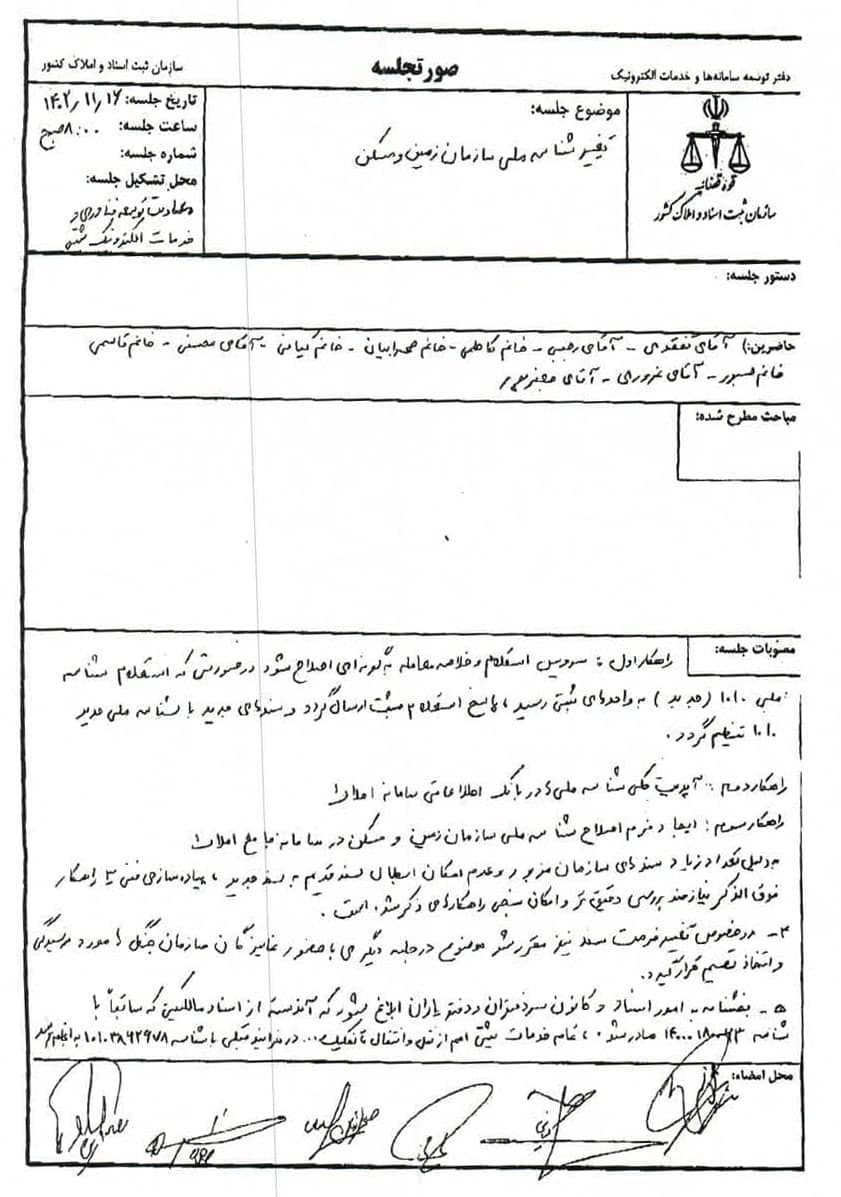 دفتر توسعه سامانه‌ها و خدمات الکترونیک
صورتجلسه
سازمان ثبت اسناد و املاک کشور
قوه قضائیه
سازمان ثبت اسناد و املاک کشور
موضوع جلسه:
تغییر شناسه ملی سازمان زمین و مسکن
تاریخ جلسه: ۱۴۰۲/۱۱/۱۶
ساعت جلسه: ۸:۰۰ صبح
شماره جلسه:
محل تشکیل جلسه:
معاونت توسعه فناوری و
خدمات الکترونیک ثبتی
دستور جلسه:
حاضرین: آقای تفقدی - آقای رجبی - خانم کاظمی - خانم صحرابیان - خانم کیانی - آقای محسنی - خانم قاسمی
خانم - آقای غروری - آقای
مباحث مطرح شده:
مصوبات جلسه:
راهکار اول : سرویس استعلام و خلاصه معامله به گونه‌ای اصلاح شود در صورتی که استعلام شناسه
ملی ۱۰۱۰ (جدید) به واحدهای ثبتی رسید، پاسخ استعلام مثبت ارسال گردد و سندهای جدید با شناسه ملی جدید
۱۰۱۰ تنظیم گردد.
راهکار دوم : آپدیت کلی شناسه ملی‌ها در بانک اطلاعاتی سامانه املاک
راهکار سوم : ایجاد فرم اصلاح شناسه ملی سازمان زمین و مسکن در سامانه جامع املاک
به دلیل تعداد زیاد سندهای سازمان مزبور و عدم امکان ابطال سند قدیم به سند جدید، پیاده سازی فنی ۳ راهکار
فوق الذکر نیازمند بررسی دقیق تر و امکان سنجی راهکارهای ذکر شده است.
۴- در خصوص تغییر فرمت سند نیز مقرر شد موضوع در جلسه دیگری با حضور نمایندگان سازمان جنگل‌ها مورد رسیدگی
و اتخاذ تصمیم قرار گیرد.
۵- بخشنامه به امور اسناد و کانون سردفتران و دفتریاران ابلاغ شود که آندسته از اسناد مالکیتی که سابقاً با
شناسه صادر شده، تمام خدمات ثبتی اعم از نقل و انتقال تا تفکیک... در فرایند قبلی با شناسه ۱۰۱۰۳۸۶۲۹۷۸ به انجام رسد
محل امضاء: